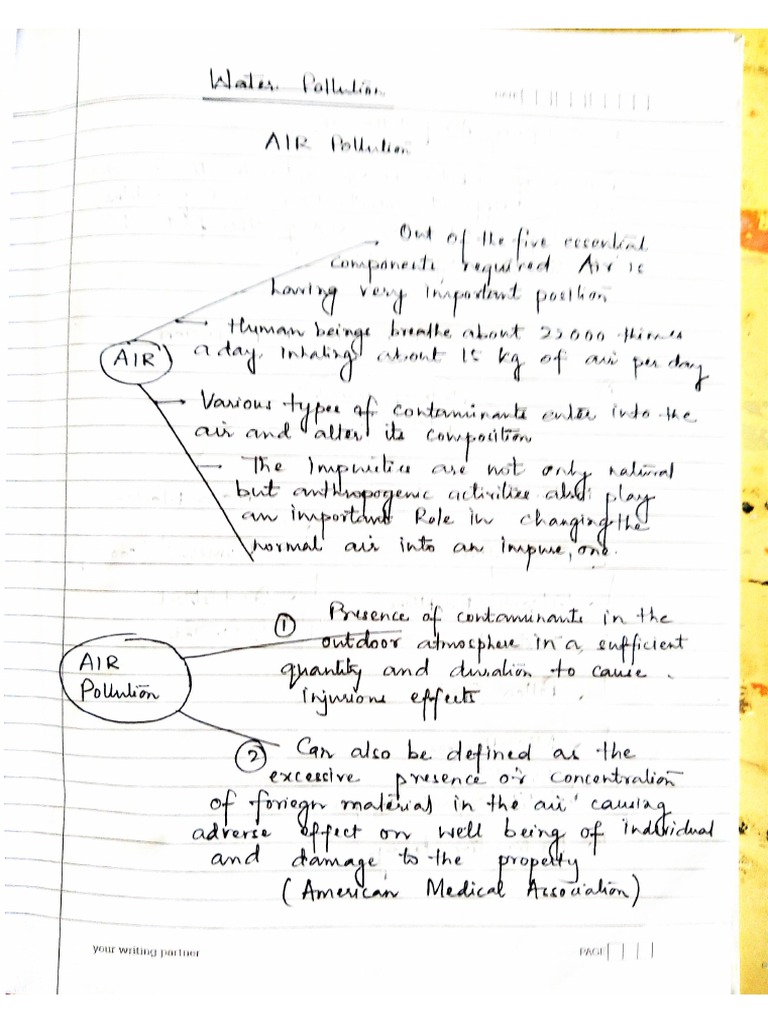 Water Pollution
DATE
AIR Pollution
Out of the five essential
components required Air is
having very important position
Human beings breathe about 22000 times
a day. Inhaling about 15 kg of air per day
AIR
Various types of contaminants enter into the
air and alter its composition
The Impurities are not only natural
but anthropogenic activities also play
an important Role in changing the
normal air into an impure, one.
① Presence of contaminants in the
outdoor atmosphere in a sufficient
quantity and duration to cause
injurious effects
AIR
Pollution
② Can also be defined as the
excessive presence or concentration
of foriegn material in the air causing
adverse effect on well being of individual
and damage to the property
(American Medical Association)
your writing partner
PAGE